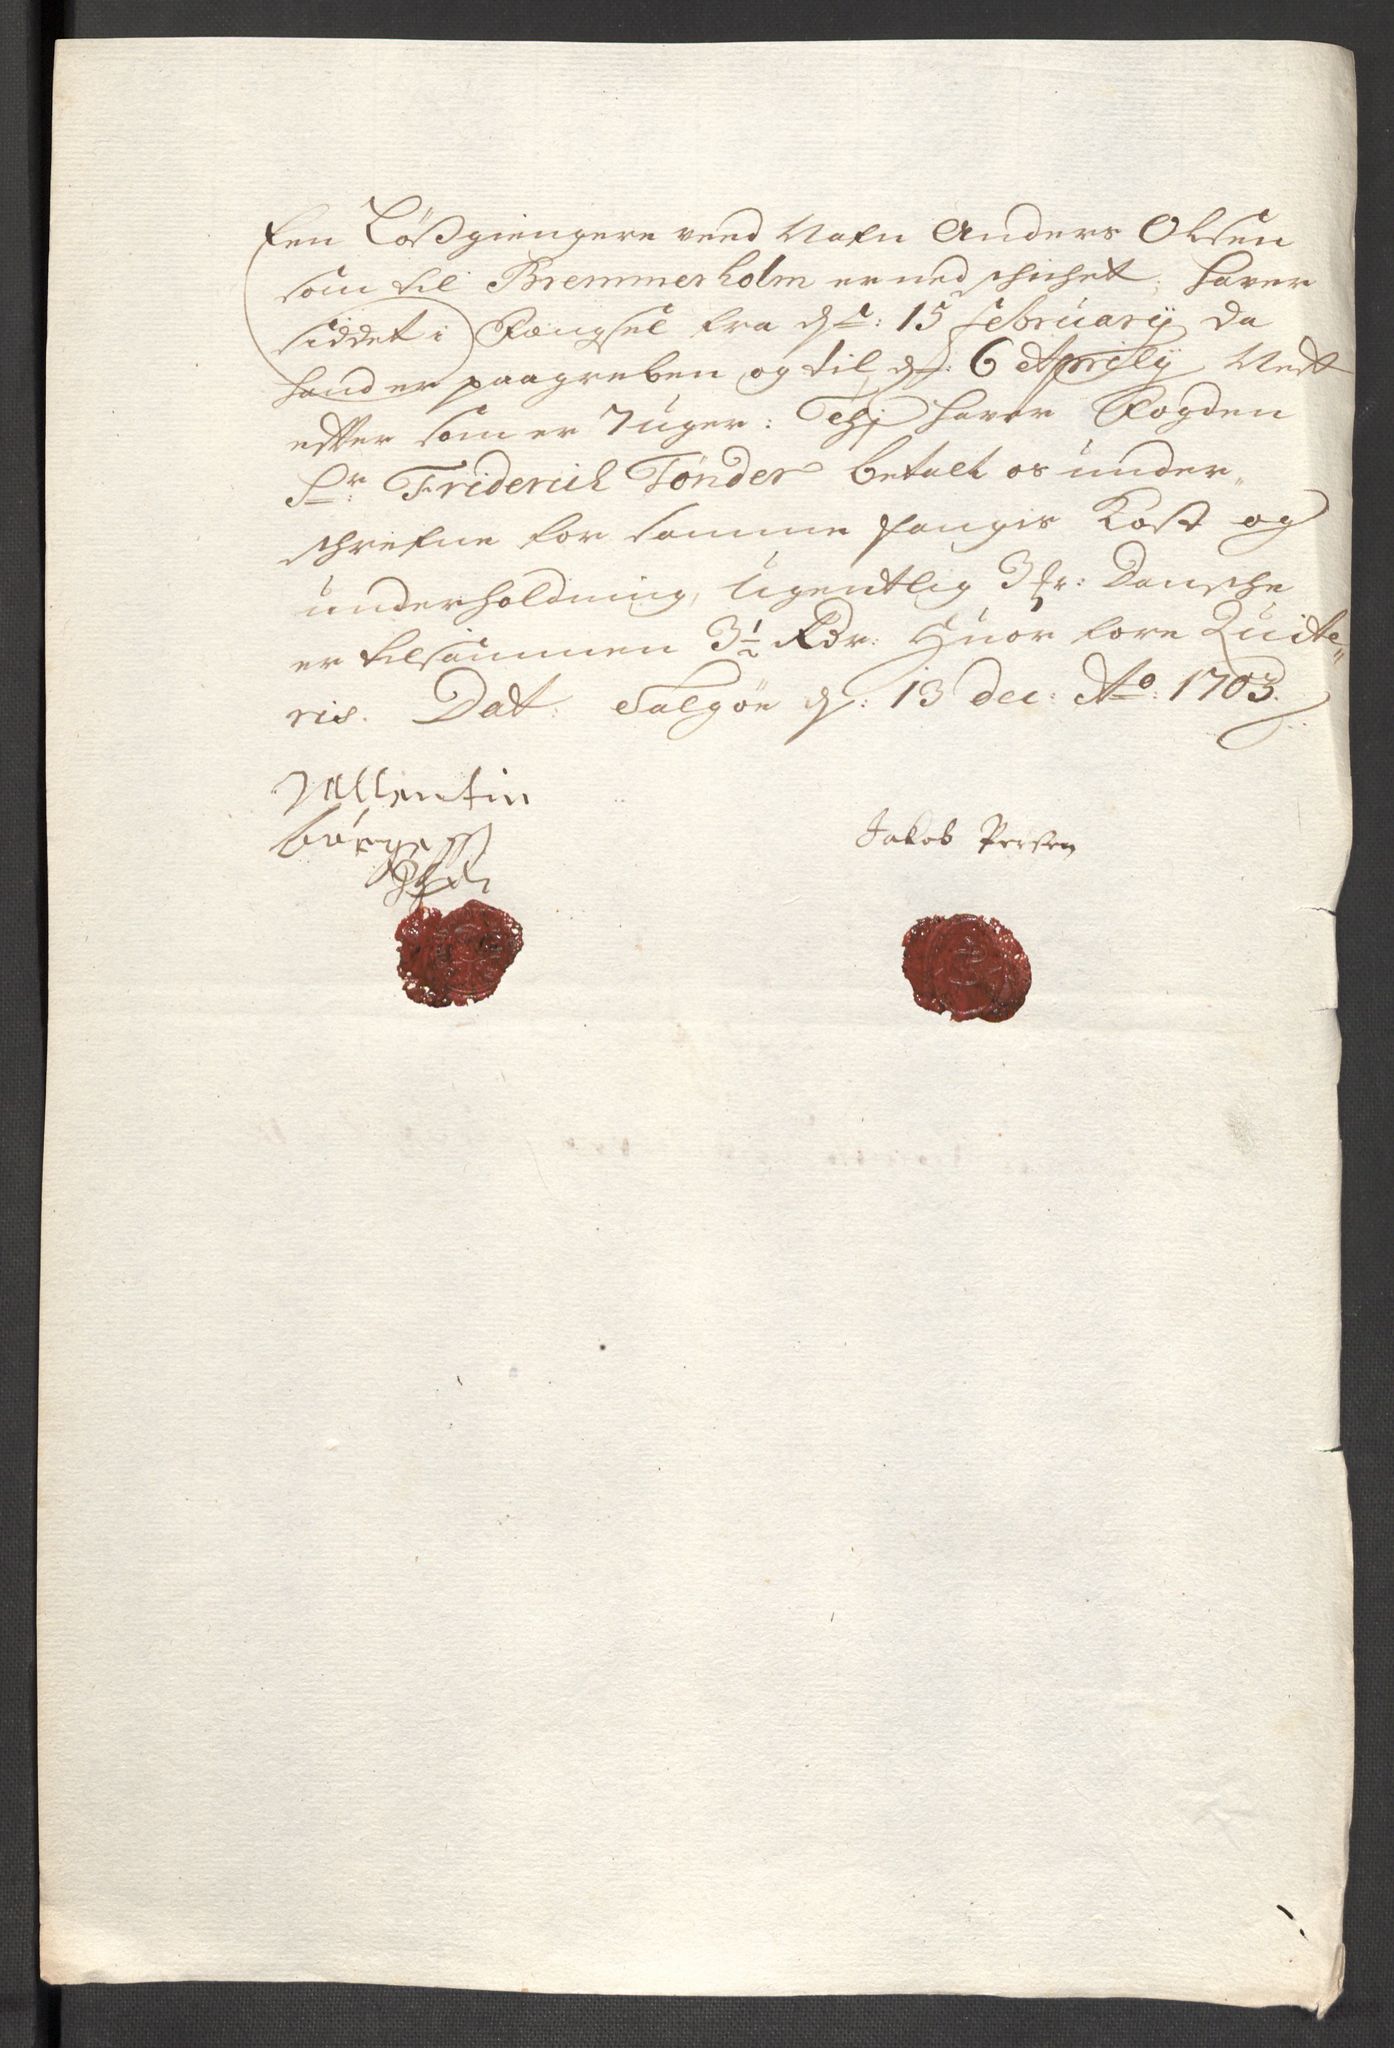 Een Lösgiengere veed Nafn Anders Olsen
som til Bremmerholm er ned schichet, haver
siddet i Fængsel fra dend: 15 februarij da
hand er paagreben og til d: 6 Aprilij Nest
effter som er 7 uger: Thi haver Fogden
Sr: Friderich Tønder betalt os under„
schrefne for samme fanges Kost og
underholdning, Ugentlig 3 Dansche
er tilsammen 3½ Rdr: Huor fore Quite„
ris. Dat: Salgöe d: 13 dec: Ao: 1703.
Vallentin
börge
Jakob Persen